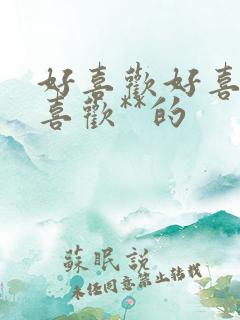 好喜歡好喜
喜歡**的
蘇眠說
未經同意禁止轉載